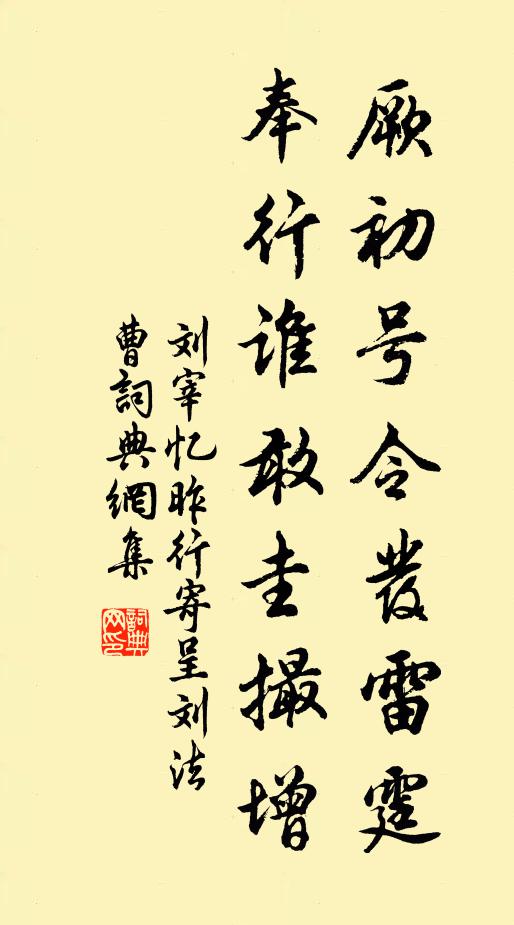 厥初号令發雷霆
奉行谁敢圭撮增
刘宰忆昨行寄呈刘法
曹詞典網集
詞典网印